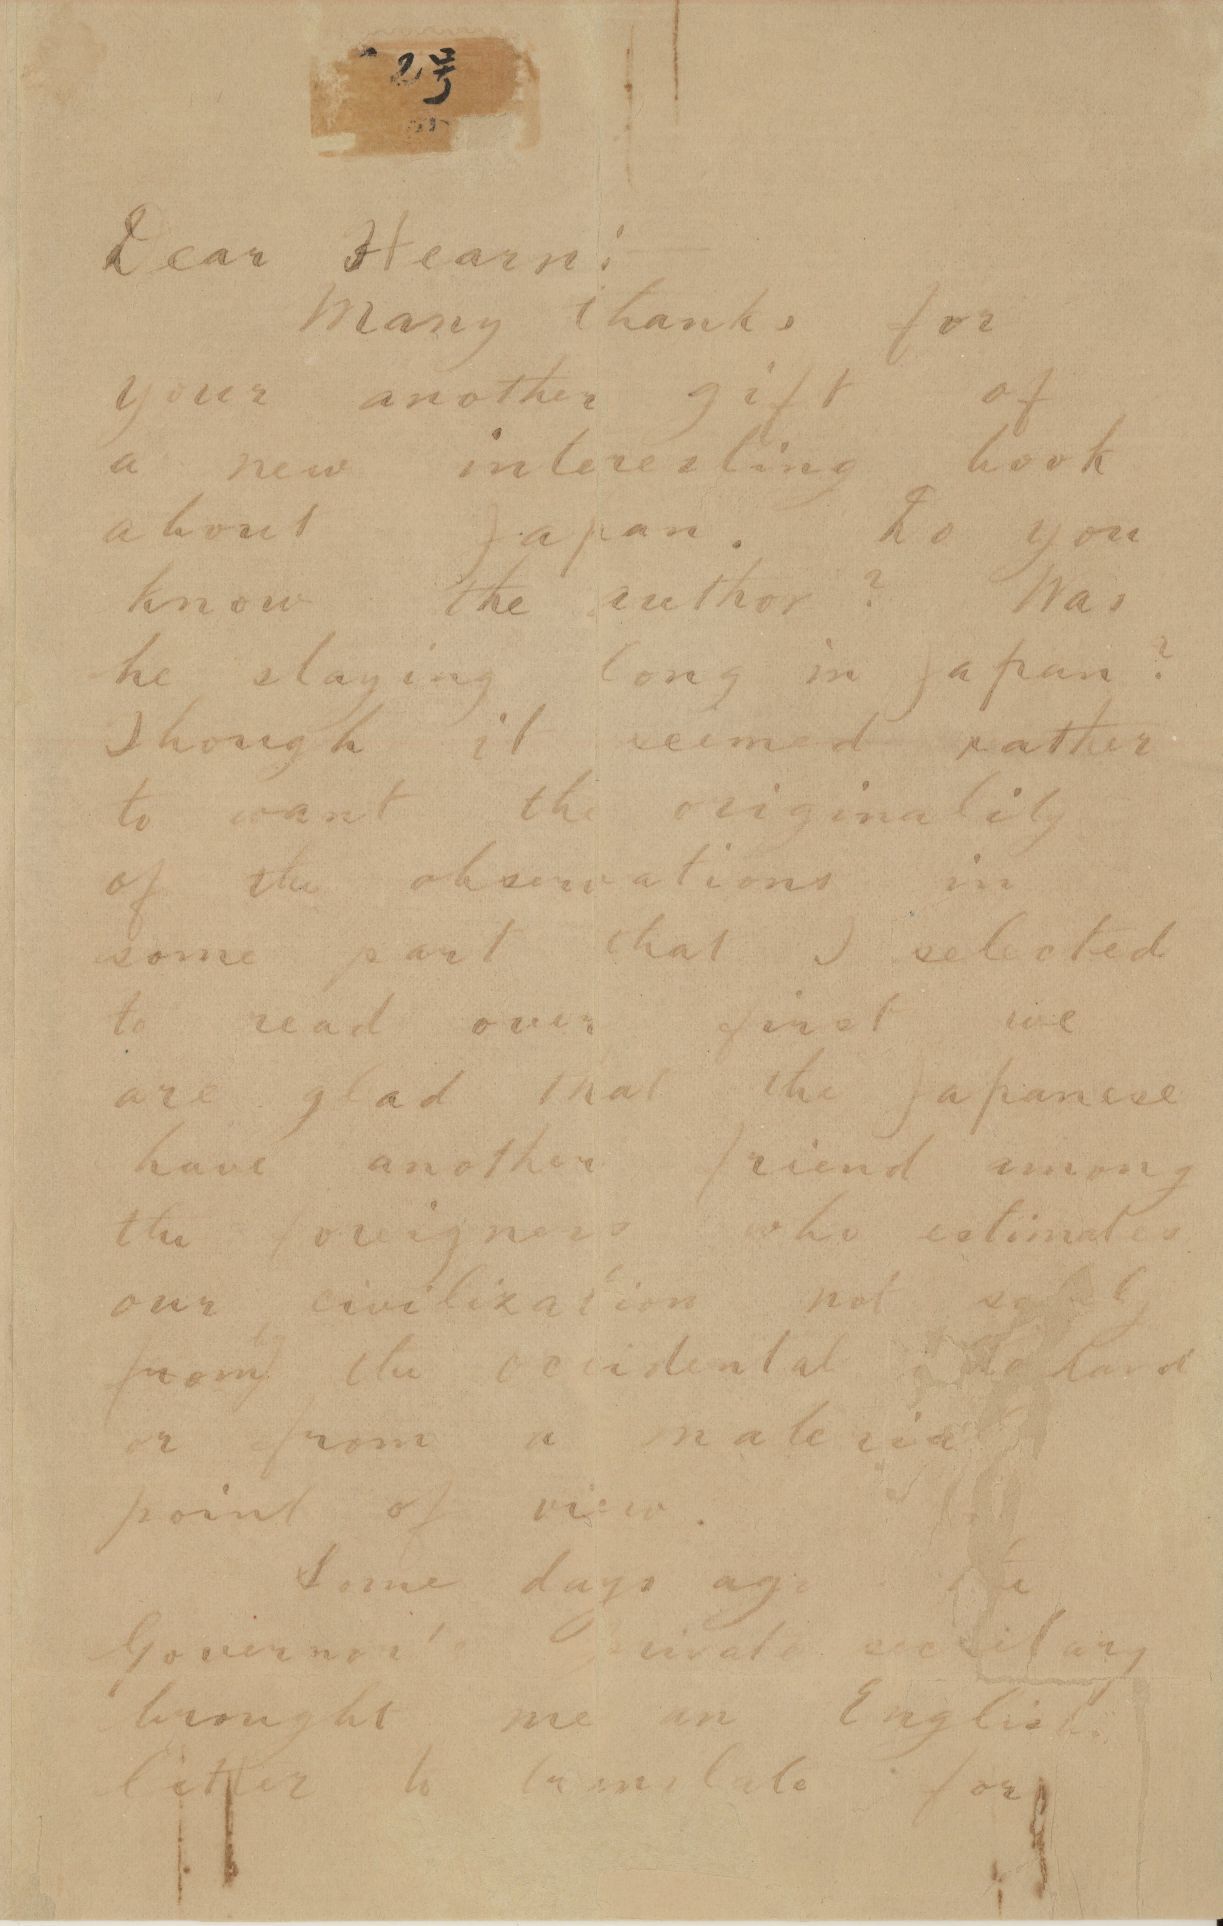 2号
Dear Hearn:—
Many thanks for
your another gift of
a new interesting book
about Japan. Do you
know the author? Was
he staying long in Japan?
Though it seemed rather
to want the originality
of the observations in
some part that I selected
to read over first we
are glad that the Japanese
have another friend among
the foreigners who estimates
our civilization not solely
from the occidental
or from a material
point of view.
Some days ago the
Governor's Private secretary
brought me an English
letter to translate for